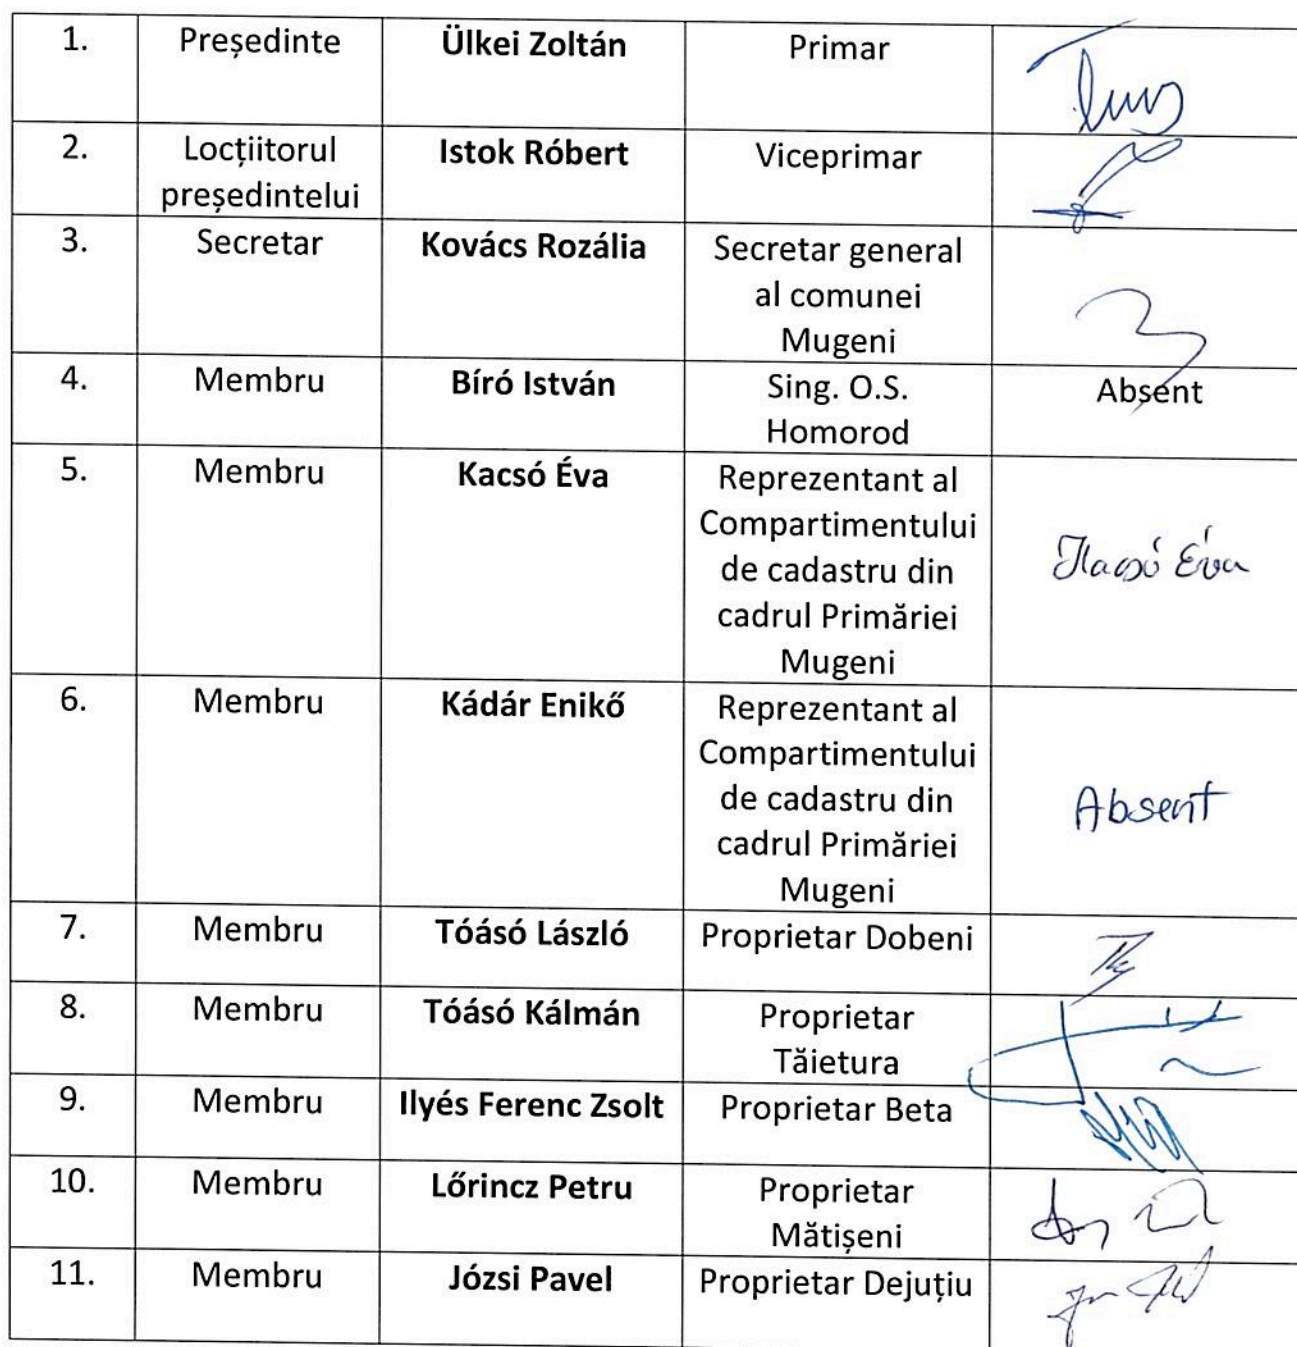 1. Președinte Ülkei Zoltán Primar
2. Locțiitorul președintelui Istok Róbert Viceprimar
3. Secretar Kovács Rozália Secretar general
al comunei
Mugeni
4. Membru Bíró István Sing. O.S. Absent
Homorod
5. Membru Kacsó Éva Reprezentant al
Compartimentului
de cadastru din Kacsó Éva
cadrul Primăriei
Mugeni
6. Membru Kádár Enikő Reprezentant al
Compartimentului
de cadastru din Absent
cadrul Primăriei
Mugeni
7. Membru Tóásó László Proprietar Dobeni
8. Membru Tóásó Kálmán Proprietar
Tăietura
9. Membru Ilyés Ferenc Zsolt Proprietar Beta
10. Membru Lőrincz Petru Proprietar
Mătișeni
11. Membru Józsi Pavel Proprietar Dejuțiu